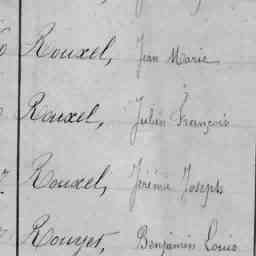 Rouxel, Jean Marie
Rouxel, Julien François
Rouxel, Jérémie Joseph
Rouyer, Benjamin Louis